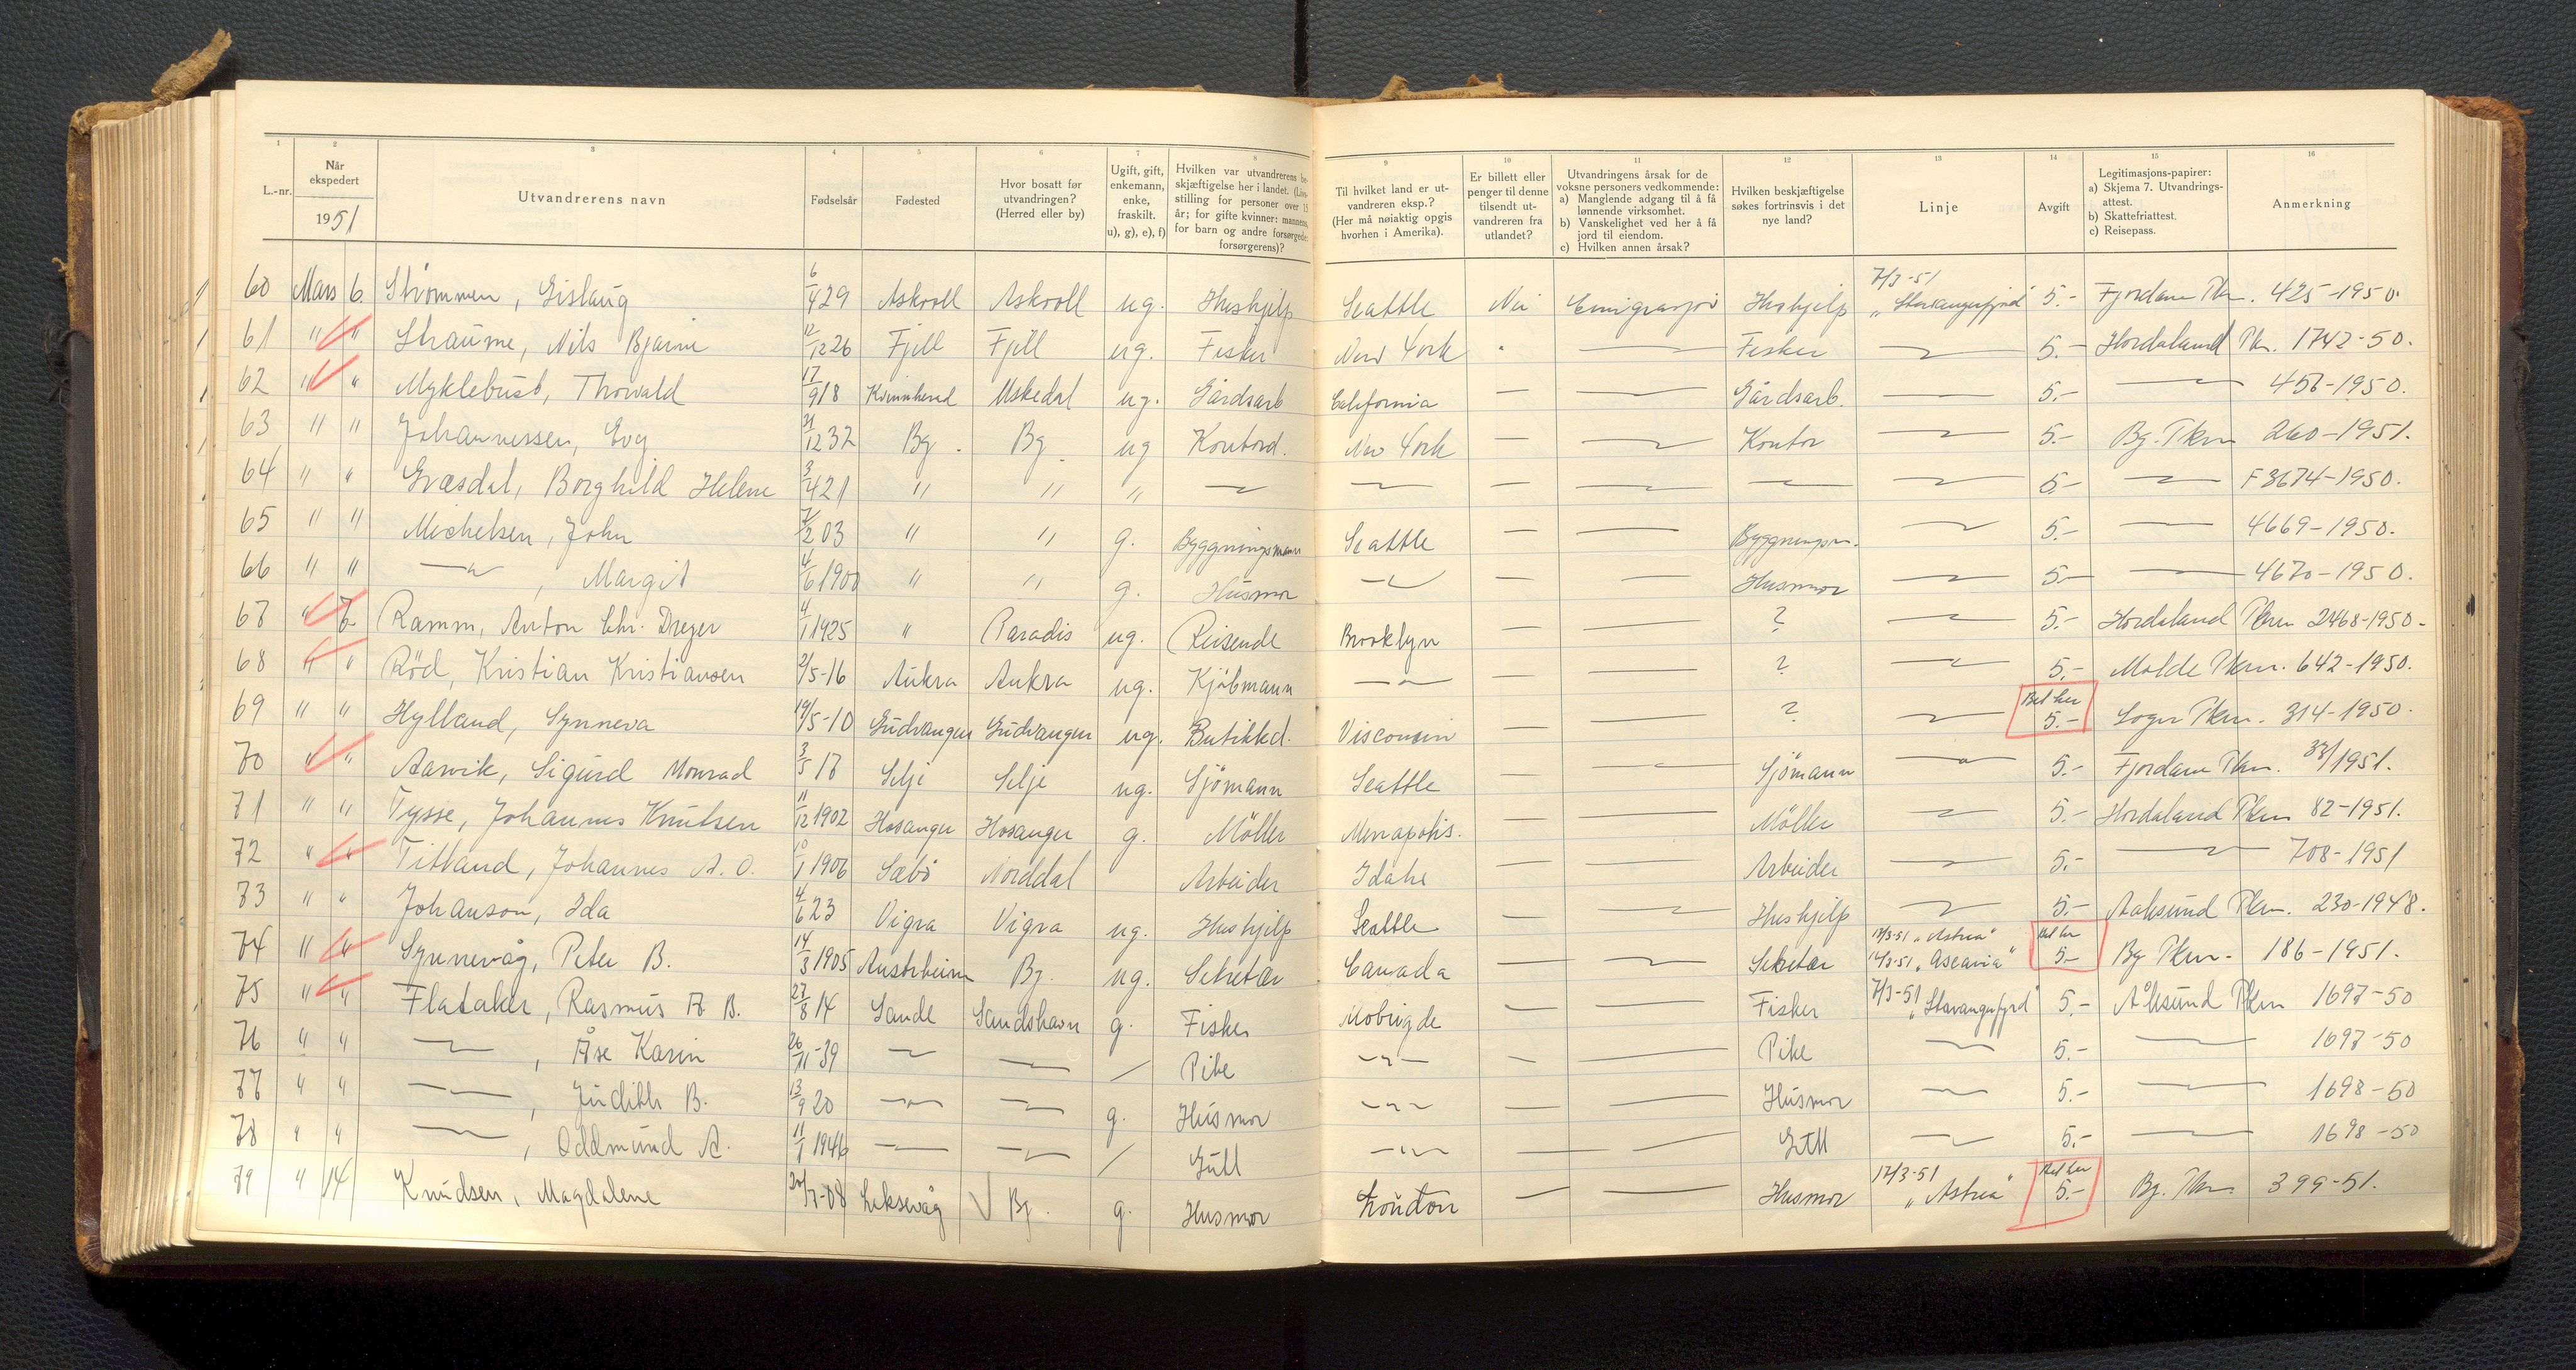 1 2 3 4 5 6 7 8 9 10 11 12 13 14 15 16
L.-nr. Når ekspedert 1951 Utvandrerens navn Fødselsår Fødested Hvor bosatt før utvandringen? (Herred eller by) Ugift, gift, enkemann, enke, fraskilt. u), g), e), f) Hvilken var utvandrerens beskjæftigelse her i landet. (Livsstilling for personer over 15 år; for gifte kvinner: mannens, for barn og andre forsørgede: forsørgerens)? Til hvilket land er utvandreren eksp.? (Her må nøiaktig opgis hvorhen i Amerika). Er billett eller penger til denne tilsendt utvandreren fra utlandet? Utvandringens årsak for de voksne personers vedkommende: a) Manglende adgang til å få lønnende virksomhet. b) Vanskelighet ved her å få jord til eiendom. c) Hvilken annen årsak? Hvilken beskjæftigelse søkes fortrinsvis i det nye land? Linje Avgift Legitimasjons-papirer: a) Skjema 7. Utvandringsattest. b) Skattefriattest. c) Reisepass. Anmerkning
60 Mars 6. Strömmen, Gislaug 6/4 29 Askvoll Askvoll ug. Hushjelp Seattle Nei Hushjelp 7/3-51 "Stavangerfjord" 5.- Fjordane Pkr. 425-1950.
61 " " Straume, Nils Bjarne 12/12 26 Fjell Fjell ug. Fisker New York " — Fisker — 5.- Hordaland Pkr. 1742-50.
62 " " Myklebust, Thorvald 17/9 18 Kvinnherad Uskedal ug. Gårdsarb California — — Gårdsarb. — 5.- — 456-1950.
63 " " Johannessen, Evy 21/12 32 Bg. Bg. ug Kontord. New York — — Kontor — 5.- Bg. Pkm 260-1951.
64 " " Gvæsdal, Borghild Helene 3/4 21 " " " — — — — — — 5.- — F 3674-1950.
65 " " Michelsen, John 7/2 03 " " g. Byggningsmann Seattle — — Byggningsm. — 5.- — 4669-1950.
66 " " — , Margit 4/6 1900 " " g. Husmor — — — Husmor — 5.- — 4670-1950.
67 " 7. Ramm, Anton Chr. Dreyer 4/1 1925 " Paradis ug. Reisende Brooklyn — — ? — 5.- Hordaland Pkm 2468-1950.
68 " " Röd, Kristian Kristiansen 2/5-16 Aukra Aukra ug. Kjöbmann — — — ? — 5.- Molde Pkm. 642-1950.
69 " " Hylland, Synneva 19/5-10 Gudvangen Gudvangen ug. Butikkd. Visconsin — — ? — Bet her 5.- Sogn Pkm. 314-1950.
70 " " Aarvik, Sigurd Monrad 3/5 17 Selje Selje ug. Sjömann Seattle — — Sjömann — 5.- Fjordane Pkm. 33/1951.
71 " " Tysse, Johannes Knutsen 11/12 1902 Hosanger Hosanger g. Möller Menapolis. — — Möller — 5.- Hordaland Pkm 82-1951.
72 " " Titland, Johannes A. O. 10/1 1906 Sæbö Norddal Arbeider Idaho — — Arbeider — 5.- — 708-1951
73 " " Johanson, Ida 4/6 23 Vigra Vigra ug. Hushjelp Seattle — — Hushjelp — 5.- Aalesund Pkm. 230-1948.
74 " " Synnevåg, Peter B. 14/3 1905 Austrheim Bg. ug. Sekretær Canada — — Sekretær "Astrea" 14/3-51 "Ascania" Bet her 5.- Bg Pkm. 186-1951.
75 " " Flataker, Rasmus B. 27/8 14 Sande Sandshavn g. Fisker — — Fisker 7/3-51 "Stavangerfjord" 5.- Ålesund Pkm 1697-50
76 " " — , Åse Karin 26/11-39 — — / Pike — — — Pike — 5.- — 1697-50
77 " " — , Judith B. 13/9 20 — — g. Husmor — — — Husmor — 5.- — 1698-50
78 " " — , Oddmund A. 11/1 1946 — — / Gutt — — — Gutt — 5.- — 1698-50
79 " 14 Knudsen, Magdalene 20/7-08 Leksevåg √ Bg. g. Husmor London — — Husmor 17/3-51 "Astrea" Bet her 5.- Bg. Pkm 399-51.